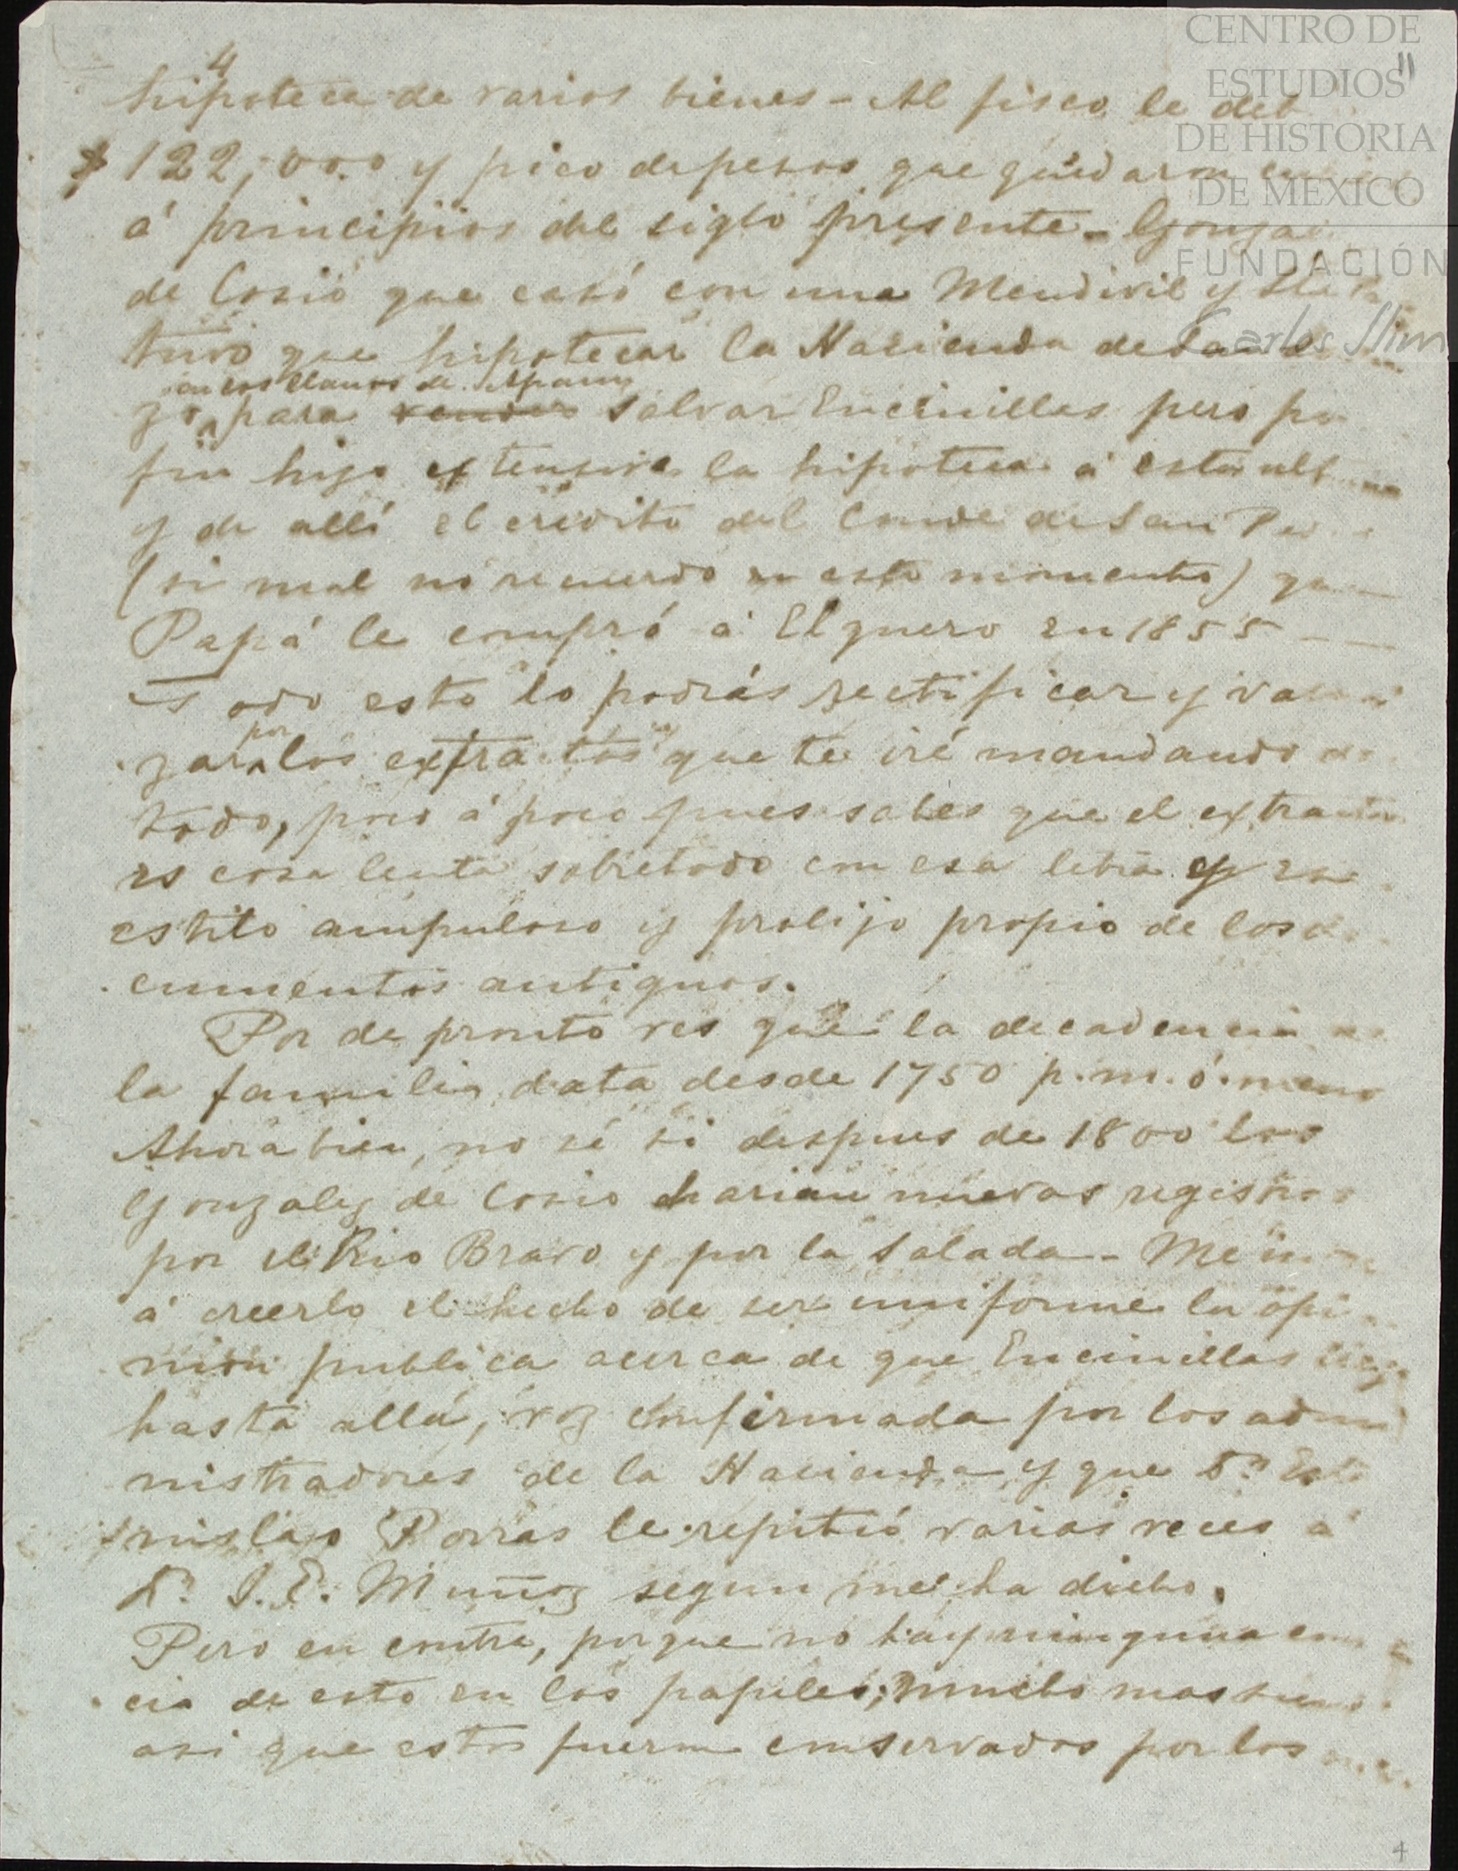 4
hipoteca de varios bienes - Al fisco le deb
$122,000 y pico de pesos que quedaron
á principios del siglo presente - Gonza
de Cosió que casó con una Mendivil y
tuvo que hipotecar la Hacienda de
en los llanos de Apam
zo, para vender salvar Encinillas pero po
fin hizo extensiva la hipoteca á esta
y de allí el crédito del Conde de San
(si mal no recuerdo en este momento)
Papá le compró á Elguero en 1855 -
Todo esto lo podrás rectificar y
por
zar los extractos que te iré mandando
todo, poco á poco pues sabes que el
es cosa lenta sobretodo con esa letra y
estilo ampuloso y prolijo propio de los
cumentos antiguos.
Por de pronto ves que la decadencia
la familia data desde 1750 p. m. ó meno
Ahora bien, no sé si despues de 1800 los
Gonzalez de Cosio harian nuevos registros
por el Rio Bravo y por la Salada - Me
á creerlo el hecho de ser uniforme la opi
nion publica acerca de que Encinillas
hasta allá, voz confirmada por los admi
nistradores de la Hacienda y que Dn
nislao Porras le repitió varias veces á
Dn J. E. Muñoz segun me ha dicho.
Pero en contra, porque no hay ninguna
cia de esto en los papeles; mucho mas
asi que estos fueron conservados por los
4
CENTRO DE
ESTUDIOS
DE HISTORIA
DE MEXICO
FUNDACIÓN
Carlos Slim